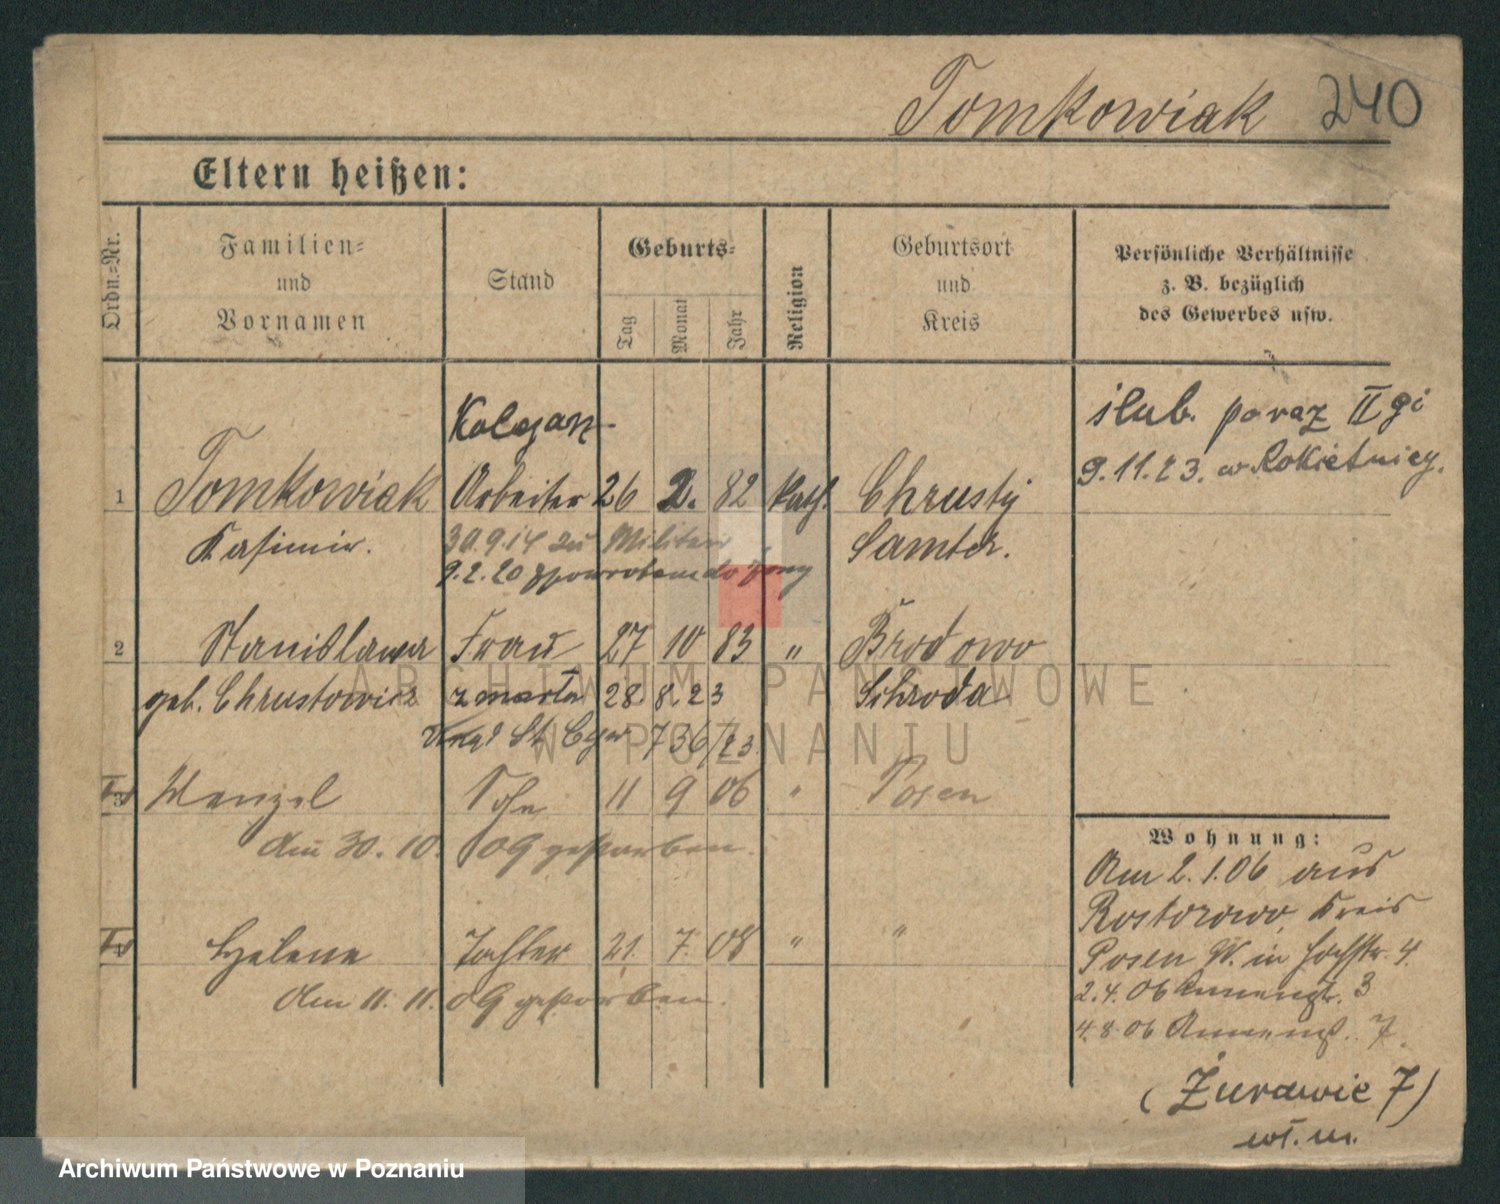 Tomkowiak 240
Eltern heißen:
Ordn.-Nr.
Familien-
und
Vornamen
Stand
Geburts-
Tag
Monat
Jahr
Religion
Geburtsort
und
Kreis
Persönliche Verhältnisse
z. B. bezüglich
des Gewerbes usw.
Kolejarz
1 Tomkowiak Arbeiter 26 2. 82 kath. Chrusty
Kasimir. Samter.
30.9.14 zu Militär
9.2.20 do żony
ślub. poraz II gi
9.11.23. w Rokietnicy.
2 Stanislawa Frau 27 10 83 " Brodowo
geb. Chrustowicz zmarła 28.8.23 Schroda
St. Cyw 736/23
3 Wenzel Sohn 11 9 06 " Posen
Am 30.10.09 gestorben.
Helene Tochter 21. 7. 08 " "
Am 11.11.09 gestorben.
Wohnung:
Am 2.1.06 aus
Rostorowo, Kreis
Posen W. in Hochstr. 4.
2.4.06 Annenstr. 3
4.8.06 Annenst. 7.
(Żurawie 7)
wł. m.
ARCHIWUM PAŃSTWOWE
W POZNANIU
Archiwum Państwowe w Poznaniu